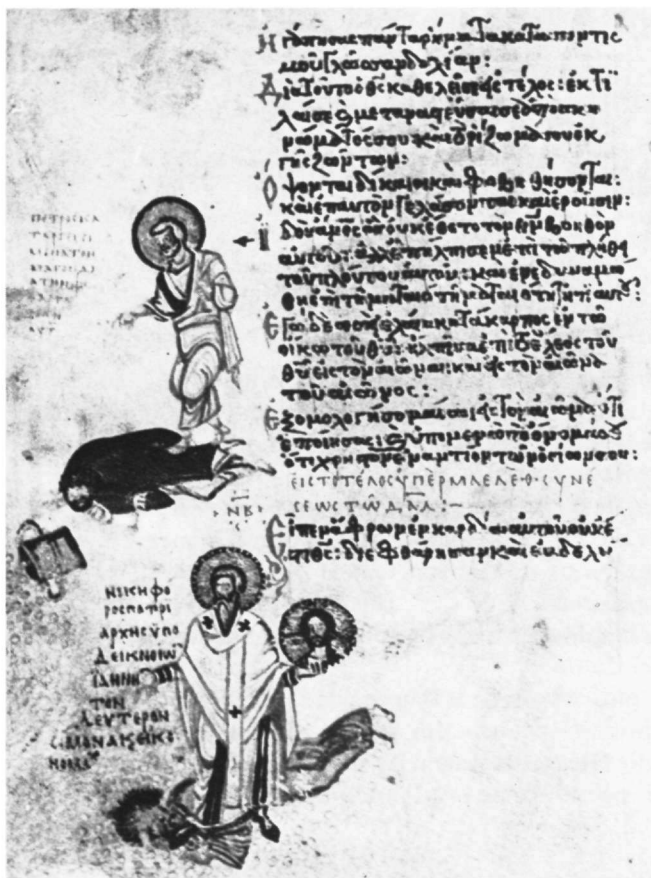 Ἠγάπησας πάντα τὰ ῥήματα καταποντισ
μοῦ γλῶσσαν δολίαν:
Διὰ τοῦτο ὁ θς καθελεῖ σε εἰς τέλος: ἐκτί
λαι σε καὶ μεταναστεύσαι σε ἀπὸ σκη
νώματός σου καὶ τὸ ῥίζωμά σου ἐκ
γῆς ζώντων:
Ὄψονται δίκαιοι καὶ φοβηθήσονται:
καὶ ἐπ' αὐτὸν γελάσονται καὶ ἐροῦσιν:
Ἰδοὺ ἄνος ὃς οὐκ ἔθετο τὸν θν βοηθὸν
αὐτοῦ: ἀλλ' ἐπήλπισεν ἐπὶ τῷ πλήθει
τοῦ πλούτου αὐτοῦ: καὶ ἐνεδυναμώ
θη ἐπὶ τῇ ματαιότητι αὐτοῦ:
Ἐγὼ δὲ ὡσεὶ ἐλαία κατάκαρπος ἐν τῷ
οἴκῳ τοῦ θυ: ἤλπισα ἐπὶ τὸ ἔλεος τοῦ
θυ εἰς τὸν αἰῶνα: καὶ εἰς τὸν αἰῶνα
τοῦ αἰῶνος:
Ἐξομολογήσομαί σοι εἰς τὸν αἰῶνα ὅτι
ἐποίησας: καὶ ὑπομενῶ τὸ ὄνομά σου
ὅτι χρηστὸν ἐναντίον τῶν ὁσίων σου:
ΕΙΣ ΤΟ ΤΕΛΟΣ ΥΠΕΡ ΜΑΕΛΕΘ ΣΥΝΕ
ΣΕΩΣ ΤΩ ΔΑΔ:
ΝΒ
Εἶπεν ἄφρων ἐν καρδίᾳ αὐτοῦ οὐκ ἔ
στι θς: διεφθάρησαν καὶ ἐβδελύ
ΝΙΚΗΦΟ
ΡΟΣ ΠΑΤΡΙ
ΑΡΧΗΣ ΥΠΟ
ΔΕΙΚΝΟΙΩΝ
ΙΑΝΝΗ
ΤΟΝ
ΔΕΥΤΕΡΟΝ
ΣΙΜΟΝΑ Κ ΕΙΚΟ
ΝΟΜΑΧΟΝ